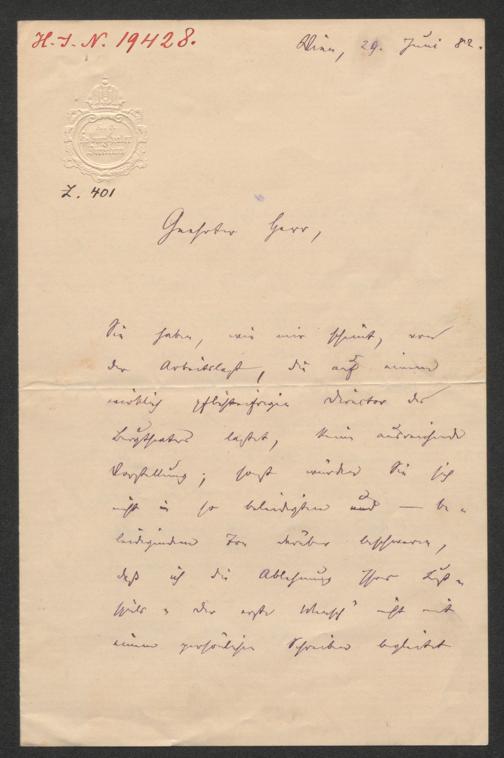 H.I.N. 19428.
Wien, 29. Juni 82.
Z. 401
Geehrter Herr,
Sie haben, wie mir scheint, von
der Arbeitslast, die auf einem
wirklich pflichteifrigen Director des
Burgtheaters lastet, keine ausreichende
Vorstellung; sonst würden Sie sich
nicht in so beleidigtem und – be-
leidigendem Ton darüber beschweren,
daß ich die Ablehnung Ihres Lust-
spiels „Der erste Mensch" nicht mit
einem persönlichen Schreiben begleitet